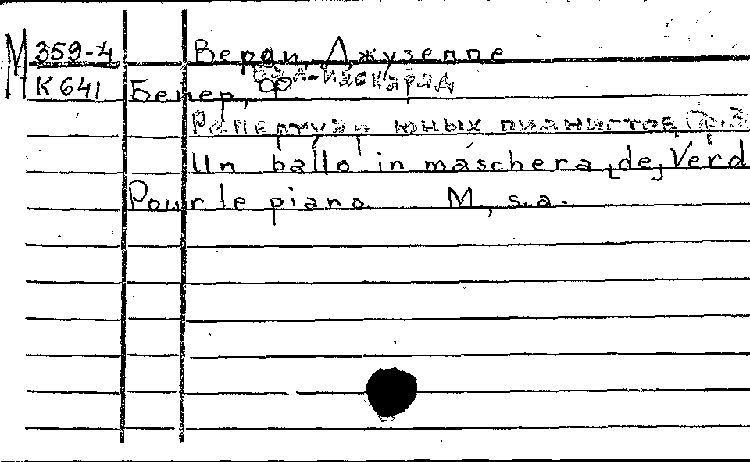 М 359-4 Верди, Джузеппе
К 641 Бал-маскарад
Бейер, Ф
Репертуар юных пианистов,
Un ballo in maschera de Verd
Pour le piano M, s.a.